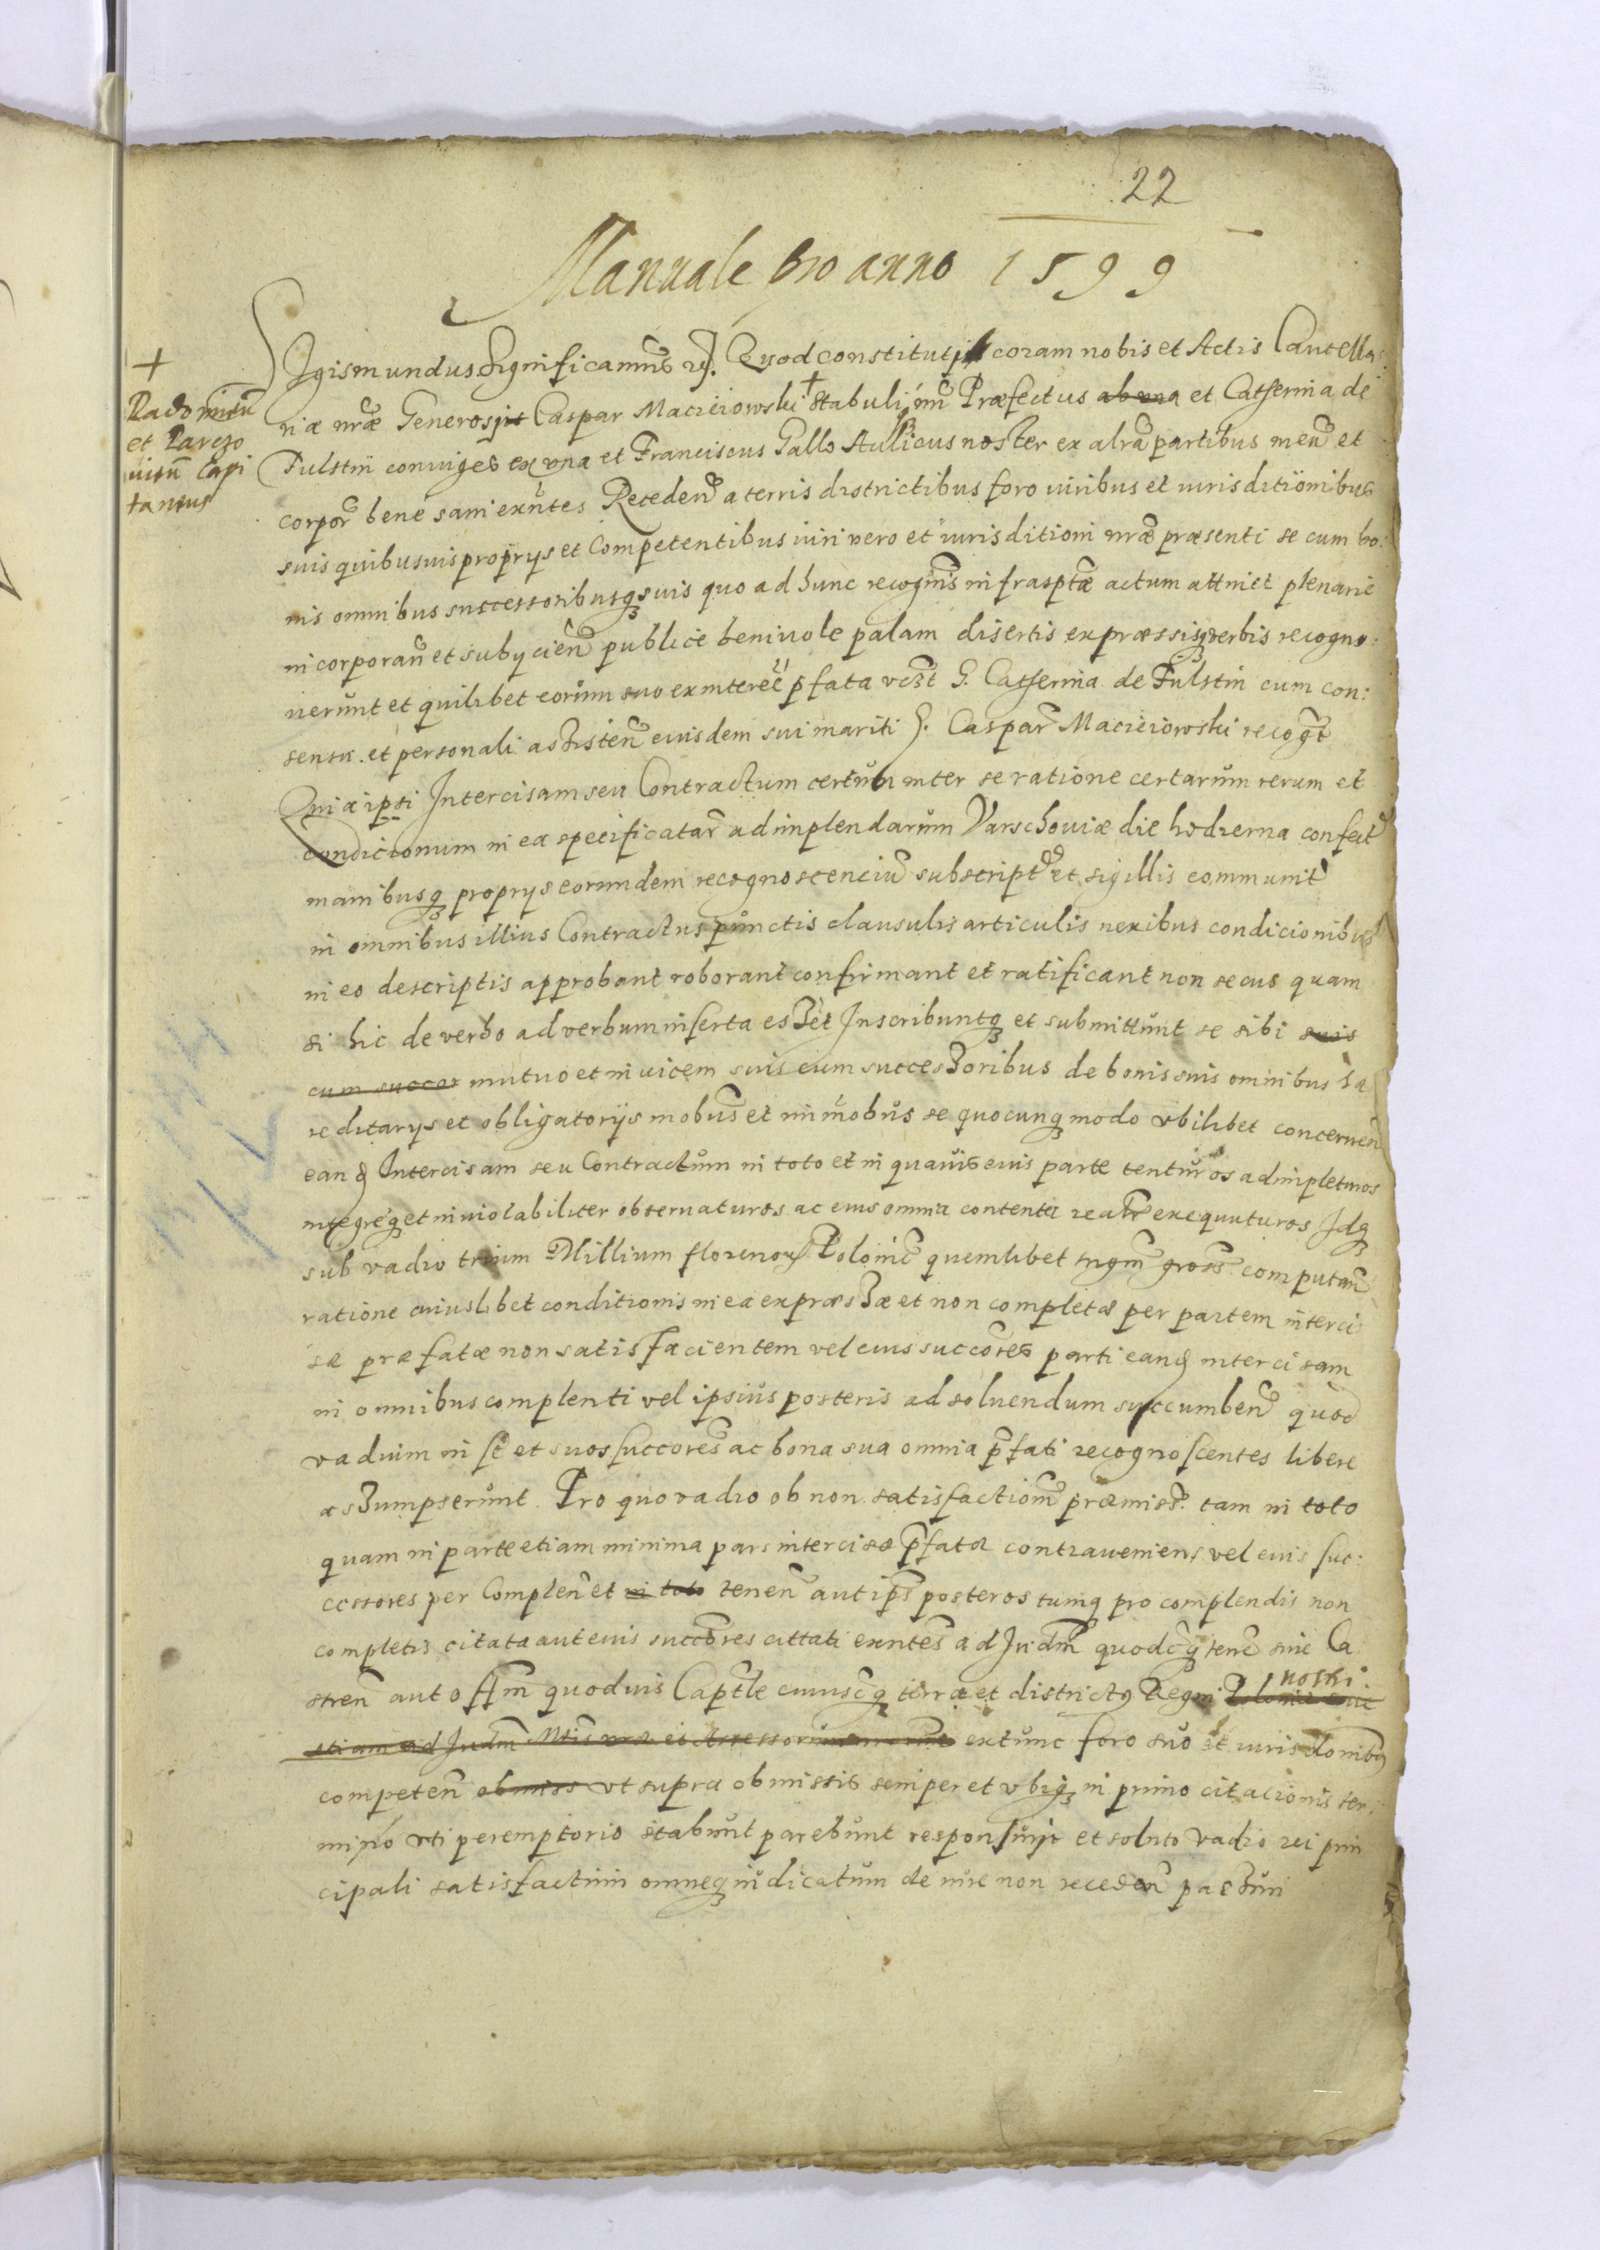 22
Manuale pro anno 1599
Sigismundus Significamus etc. Quod constituti coram nobis et Actis Cancella:
+
Radomien
et Parczo
vien Capi
taneus
riæ nræ Generosi Caspar Macieiowski + Stabuli nri Præfectus ab una et Catherina de
Fulstin coniuges ex una et Franciscus Gallo Aullicus noster ex altra partibus mente et
corpore bene sani exntes Receden a terris districtibus foro iuribus et iurisditionibus
suis quibusuis proprijs et Competentibus iuri vero et iurisditioni nræ præsenti se cum bo:
nis omnibus successoribusq suis quo ad hunc recognis infrasptæ actum attinet plenarie
incorporan et subijcien publice beniuole palam disertis expræssisq verbis recogno:
uerunt et quilibet eorum suo ex interee pfata vczt G. Catherina de Fulstin cum con:
sensu et personali assisten eiusdem sui mariti G. Caspar Macieiowski recogt
Quia ipsi Intercisam seu Contractum certum inter se ratione certarum rerum et
condicionum in ea specificatar adimplendarum Varschouiæ die hodierna confect
manibusq proprijs eorundem recognoscenciu subscript et sigillis communit
in omnibus illius Contractus punctis clausulis articulis nexibus condicionibus
in eo descriptis approbant roborant confirmant et ratificant non secus quam
si hic de verbo ad verbum inserta esset Inscribuntq et submittunt se sibi suis
cum succes mutuo et inuicem suis cum successoribus de bonis suis omnibus hæ
reditarijs et obligatorijs mobus et immobus se quocunq modo vbilibet concernen
eand Intercisam seu Contractum in toto et in quauis eius parte tenturos adimpleturos
integreq et inuiolabiliter obseruaturos ac eius omnia contenta realr exequuturos Idq
sub vadio trium Millium florenor Polonic quemlibet trigin gross computan
ratione cuiuslibet conditionis in ea expræssæ et non completæ per partem interci
sæ præfatæ non satisfacientem vel eius succores parti eand intercisam
in omnibus complenti vel ipsius posteris ad soluendum succumben quod
vadium in se et suos succores ac bona sua omnia pfati recognoscentes libere
assumpserunt. Pro quo vadio ob non satisfactionem præmiss. tam in toto
quam in parte etiam minima pars intercisæ pfatæ contraueniens vel eius suc:
cessores per Complen et in toto tenen aut ips posteros tumq pro complendis non
completis citata aut eius succores cittati exntes ad Judm quodcq terre siue Ca
stren aut offm quoduis Captle cuiuscq terræ et districtus Regni Poloniæ siue nostri
etiam ad Judm Mtis nræ et Assessorum extunc foro suo et iurisdonibus
competen obmiss vt supra obmissis semper et vbiq in primo citationis ter:
mino vti peremptorio stabunt parebunt responsuri et soluto vadio rei prin
cipali satisfacturi omneq iudicatum de iure non receden passuri